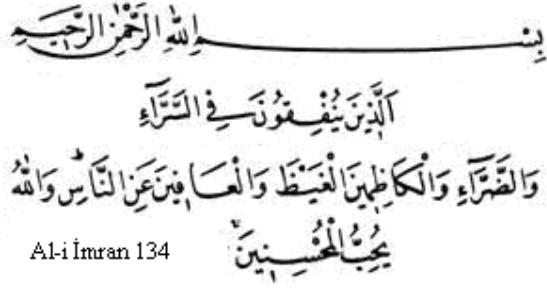 بِسْمِ اللّٰهِ الرَّحْمٰنِ الرَّحِيمِ
اَلَّذِينَ يُنْفِقُونَ فِي السَّرَّٓاءِ
وَالضَّرَّٓاءِ وَالْكَاظِمِينَ الْغَيْظَ وَالْعَافِينَ عَنِ النَّاسِۜ وَاللّٰهُ
يُحِبُّ الْمُحْسِنِينَۚ
Al-i İmran 134